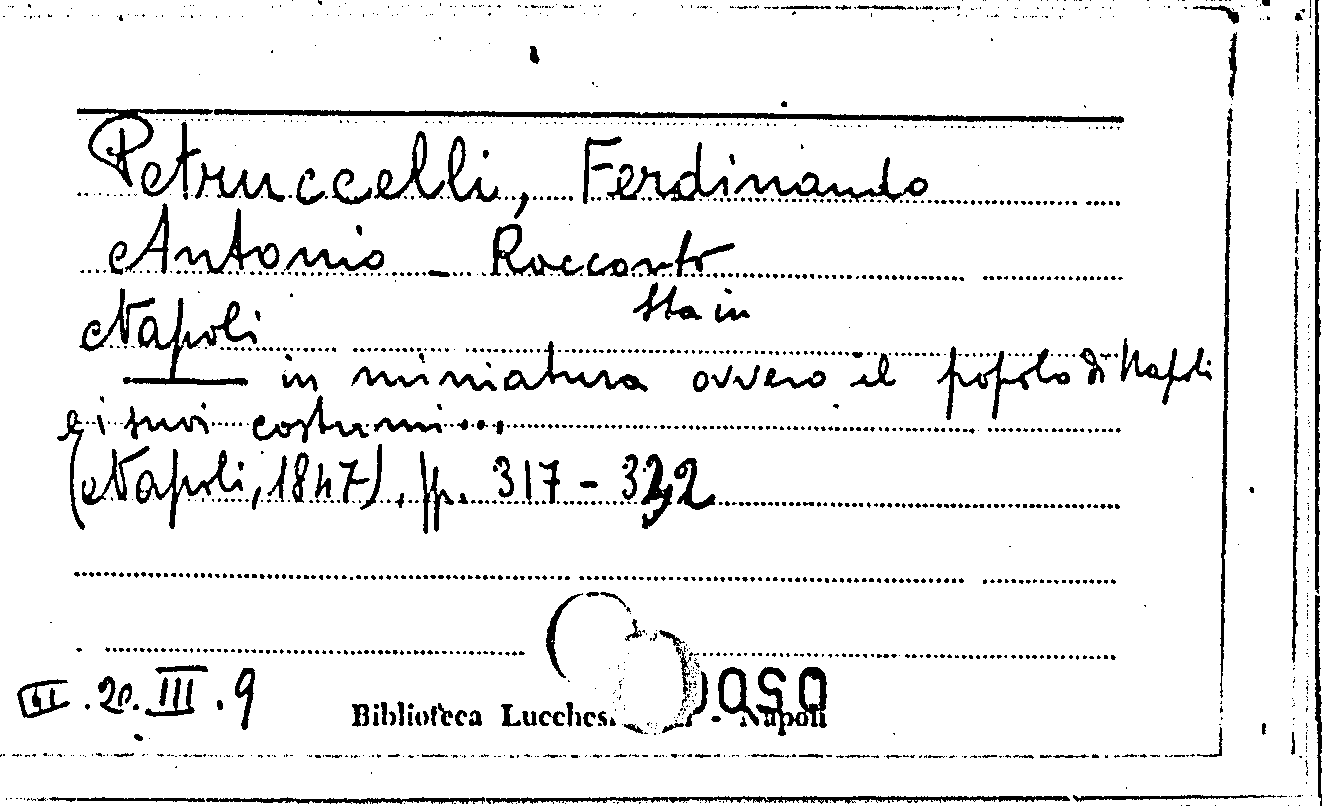 Petruccelli, Ferdinando
Antonio - Racconto
Sta in
Napoli
in miniatura ovvero il popolo di Napoli
e i suoi costumi...
(Napoli, 1847), pp. 317 - 322
III.9
Biblioteca Lucchesi - Napoli